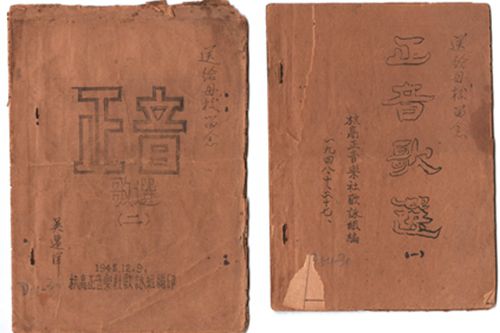 送给母校留念
正音
歌選
(二)
1948.12.9.
杭高正音樂社歌詠組編印
送给母校留念
正音歌選
(一)
杭高正音樂社歌詠組編